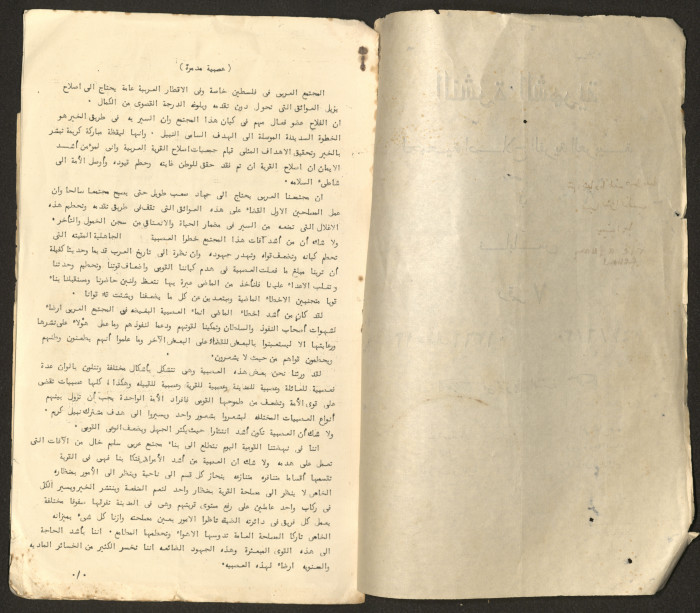 ( عصبية مدمرة )
المجتمع العربى فى فلسطين خاصة وفى الاقطار العربية عامة يحتاج الى اصلاح
يزيل العوائق التى تحول دون تقدمه وبلوغه الدرجة القصوى من الكمال .
ان الفلاح عضو فعال مهم فى كيان هذا المجتمع وان السير به فى طريق الخير هو
الخطوة السديدة الموصلة الى الهدف السامى النبيل . وانها ليقظة مباركة كريمة تبشر
بالخير وتحقيق الاهداف المثلى قيام جمعيات اصلاح القرية العربية وانى لمؤمن أشد
الايمان ان اصلاح القرية ان تم فقد حقق للوطن غايته وحطم قيوده وأوصل الأمة الى
شاطىء السلامه .
ان مجتمعنا العربى يحتاج الى جهاد صعب طويل حتى يصبح مجتمعا صالحا وان
عمل المصلحين الاول القضاء على هذه العوائق التى تقف فى طريق تقدمه وتحطيم هذه
الاغلال التى تمنعه من السير فى مضمار الحياة والانعتاق من سجن الخمول والتأخر .
ولا شك أن من أشد آفات هذا المجتمع خطرا العصبية الجاهلية المقيته التى
تحطم كيانه وتضعف قواه وتهدر جهوده . وان نظرة الى تاريخ العرب قديما وحديثا كفيلة
أن ترينا مبلغ ما فعلت العصبية فى هدم كياننا القومى واضعاف قوتنا وتحطيم وحدتنا
وتغلب الاعداء علينا فلنأخذ من الماضى عبرة بها نتعظ ولنبن حاضرنا ومستقبلنا بناء
قويا متجنبين الاخطاء الماضية ومبتعدين عن كل ما يضعفنا ويشتت قوانا .
لقد كان من أشد اخطاء الماضى انماء العصبية البغيضه فى المجتمع العربى ارضاء
لشهوات أصحاب النفوذ والسلطان وتمكينا لقوتهم ودعما لنفوذهم وما على هؤلاء على نشرها
ورعايتها الا ليستعينوا بالبعض للقضاء على البعض الآخر وما علموا أنهم يطعنون وطنهم
ويحطمون قواهم من حيث لا يشعرون .
لقد ورثنا نحن بعض هذه العصبية وهى تتشكل بأشكال مختلفة وتتلون بالوان عدة
فعصبية للعائلة وعصبية للمدينة وعصبية للقرية وعصبية للقبيله وهكذا . كلها عصبيات تقضى
على قوى الأمة وتضعف من طموحها القومى فافراد الأمة الواحدة يجب أن تزول بينهم
أنواع العصبيات المختلفه ليشعروا بشعور واحد ويسيروا الى هدف مشترك نبيل كريم .
ولا شك أن العصبية تكون أشد انتشارا حيث يكثر الجهل ويضعف الوعى القومى .
اننا فى نهضتنا القومية اليوم نتطلع الى بناء مجتمع عربى سليم خال من الآفات التى
تعمل على هدمه ولا شك ان العصبية من أشد الأمراض فتكا بنا فهى فى القرية
تقسمها أقساما متنافره متنازعه ينحاز كل قسم الى ناحية وينظر الى الأمور بمنظاره
الخاص لا ينظر الى مصلحة القرية بمنظار واحد لتعم المنفعة وينتشر الخير ويسير الكل
فى ركاب واحد عاملين على رفع مستوى قريتهم وهى فى المدينة تفرقها صفوفا مختلفة
يعمل كل فريق فى دائرته الضيقه ناظرا الامور بعين مصلحته وازنا كل شىء بميزانه
الخاص تاركا المصلحة العامة تدوسها الاهواء وتحطمها المطامع . اننا بأشد الحاجة
الى هذه القوى المبعثرة وهذه الجهود الضائعه اننا نخسر الكثير من الخسائر الماديه
والمعنويه ارضاء لهذه العصبيه .
./.
النشرة الشهرية